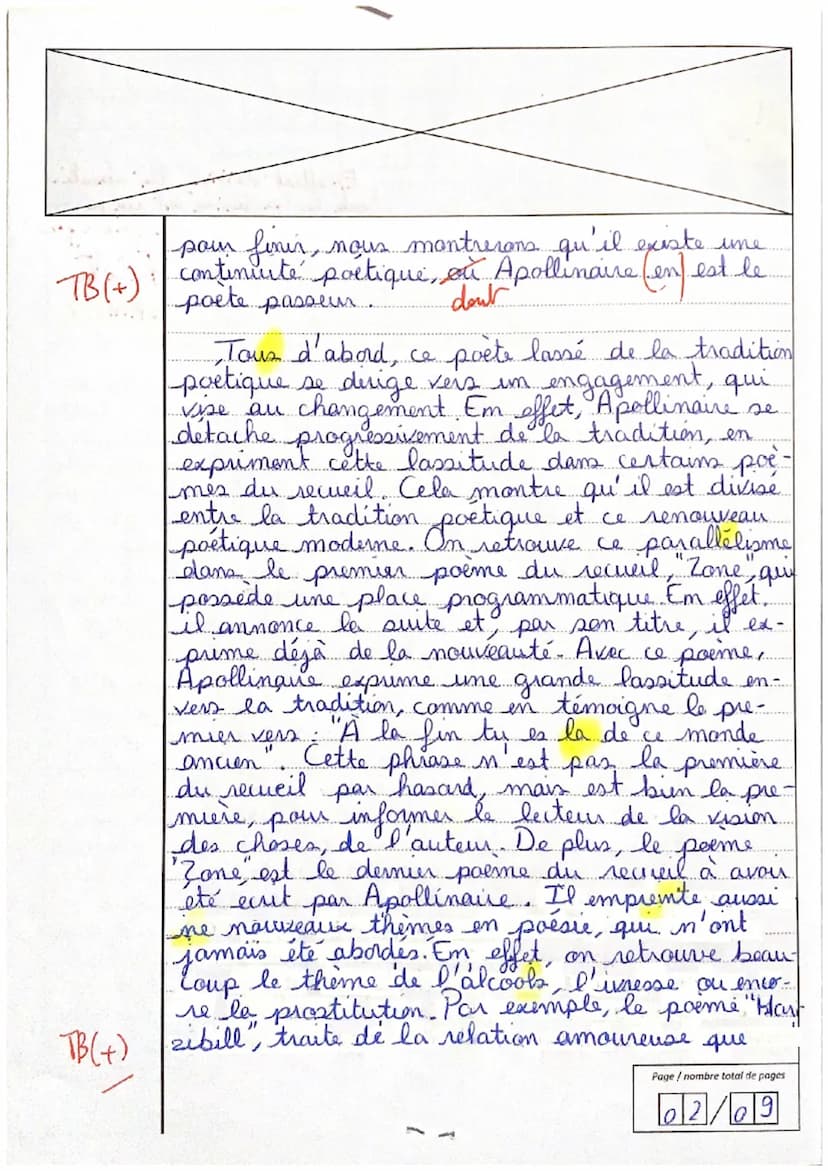 pour finir, nous montrerons qu'il existe une
TB(+) continuité poétique, où Apollinaire (en) est le
poète passeur. dont
Tous d'abord, ce poète lassé de la tradition
poétique se dirige vers un engagement, qui
vise au changement. Em effet, Apollinaire se
détache progressivement de la tradition, en
expriment cette lassitude dans certains poè-
mes du recueil. Cela montre qu'il est divisé
entre la tradition poétique et ce renouveau
poétique moderne. On retrouve ce parallèlisme
dans le premier poème du recueil, "Zone", qui
possède une place programmatique. Em effet,
il annonce la suite et, par son titre, il ex-
prime déjà de la nouveauté. Avec ce poème,
Apollinaire exprime une grande lassitude en-
vers la tradition, comme en témoigne le pre-
mier vers : "À la fin tu es la de ce monde
ancien". Cette phrase n'est pas la première
du recueil par hasard, mais est bien la pre-
mière, pour informer le lecteur de la vision
des choses, de l'auteur. De plus, le poème
"Zone", est le dernier poème du recueil à avoir
été ecrit par Apollinaire. Il emprente aussi
ne nouveaux thèmes en poésie, qui n'ont
jamais été abordés. Em effet, on retrouve beau-
coup le thème de l'álcools, l'ivresse ou enco-
re la prostitution. Par exemple, le poème "Mar-
TB(+) zibill", traite de la relation amoureuse que
Page / nombre total de pages
02/09